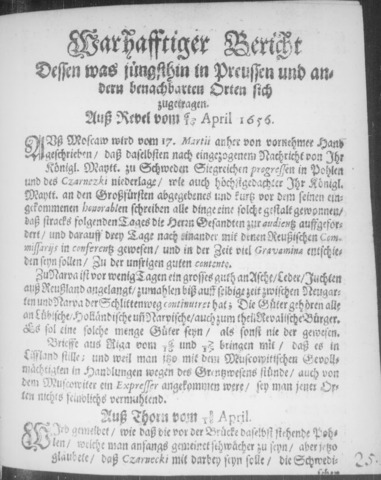 Warhafftiger Bericht
Dessen was jüngsthin in Preussen und an-
dern benachbarten Orten sich
zugetragen.
Auß Revel vom April 1656.
AUß Moscaw wird vom 17. Martii anher von vornehmer Hand
geschrieben / daß daselbsten nach eingezogenem Nachricht von Ihr
Königl. Maytt. zu Schweden Siegreichen progressen in Pohlen
und des Czarnecki niederlage / wie auch höchstgedachter Ihr Königl.
Maytt. an den Großfürsten abgegebenes und kurtz vor dem seinen ein-
gekommenen favorablen schreiben alle dinge eine solche gestalt gewonnen /
daß stracks folgenden Tages die Herrn Gesandten zur audientz auffgefor-
dert / und darauff drey Tage nach einander mit denen Reußischen Com-
missariis in conferentz gewesen / und in der Zeit viel Gravamina entschie-
den seyn sollen / Zu der unsrigen guten contento.
Zu Narva ist vor wenig Tagen ein grosses guth an Asche / Leder / Juchten
auß Reußland angelangt / zumahlen biß auff selbige zeit zwischen Neugar-
ten und Narva der Schlittenweg continuiret hat; Die Güter gehören alle
an Lübische / Holländische uñ Narvische / auch zum theil Revalische Bürger.
Es sol eine solche menge Güter seyn / als sonst nie der gewesen.
Brieffe aus Riga vom und bringen mit / daß es in
Liffland stille / und weil man itzo mit dem Muscowitischen Gevoll-
mächtigten in Handlungen wegen des Grentzwesens stünde / auch von
dem Muscowiter ein Expresser angekommen were / sey man jener Or-
ten nichts feindlichs vermuhtend.
Auß Thorn vom April.
WIrd gemeldet / wie daß die vor der Brücke daselbst stehende Poh-
len / welche man anfangs gemeinet schwächer zu seyn / aber jetzo
glaubete / daß Czarnecki mit darbey seyn solle / die Schwedi-
schen
25.